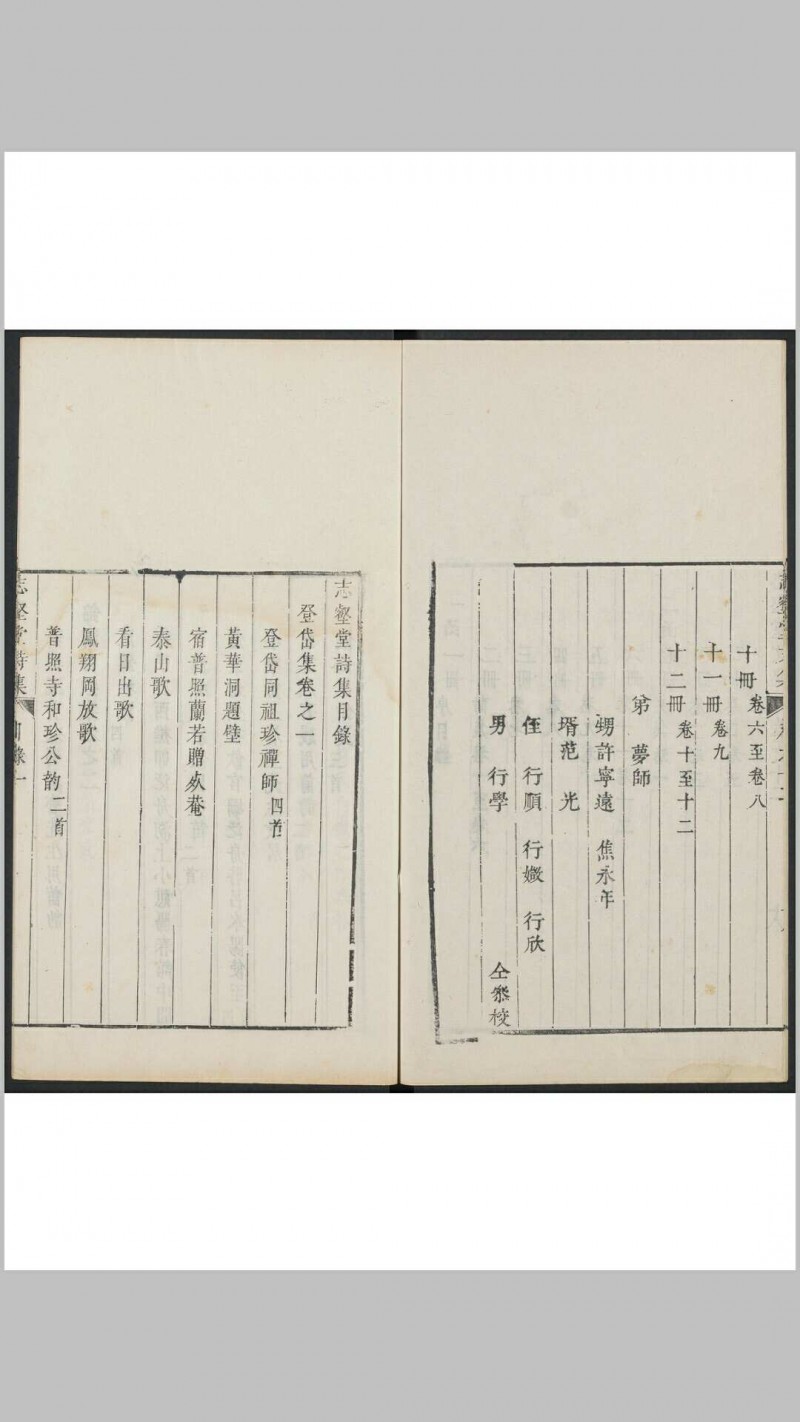 十冊 卷六至卷八
十一冊 卷九
十二冊 卷十至十二
弟 夢師
甥許寧遠 焦永年
壻范 光
侄 行順 行嬓 行欣
男 行學 仝叅校
志壑堂詩集目錄
登岱集卷之一
登岱同祖珍禪師四首
黃華洞題壁
宿普照蘭若贈炏菴
泰山歌
看日出歌
鳳翔岡放歌
普照寺和珍公韵二首
志壑堂詩集 目錄一